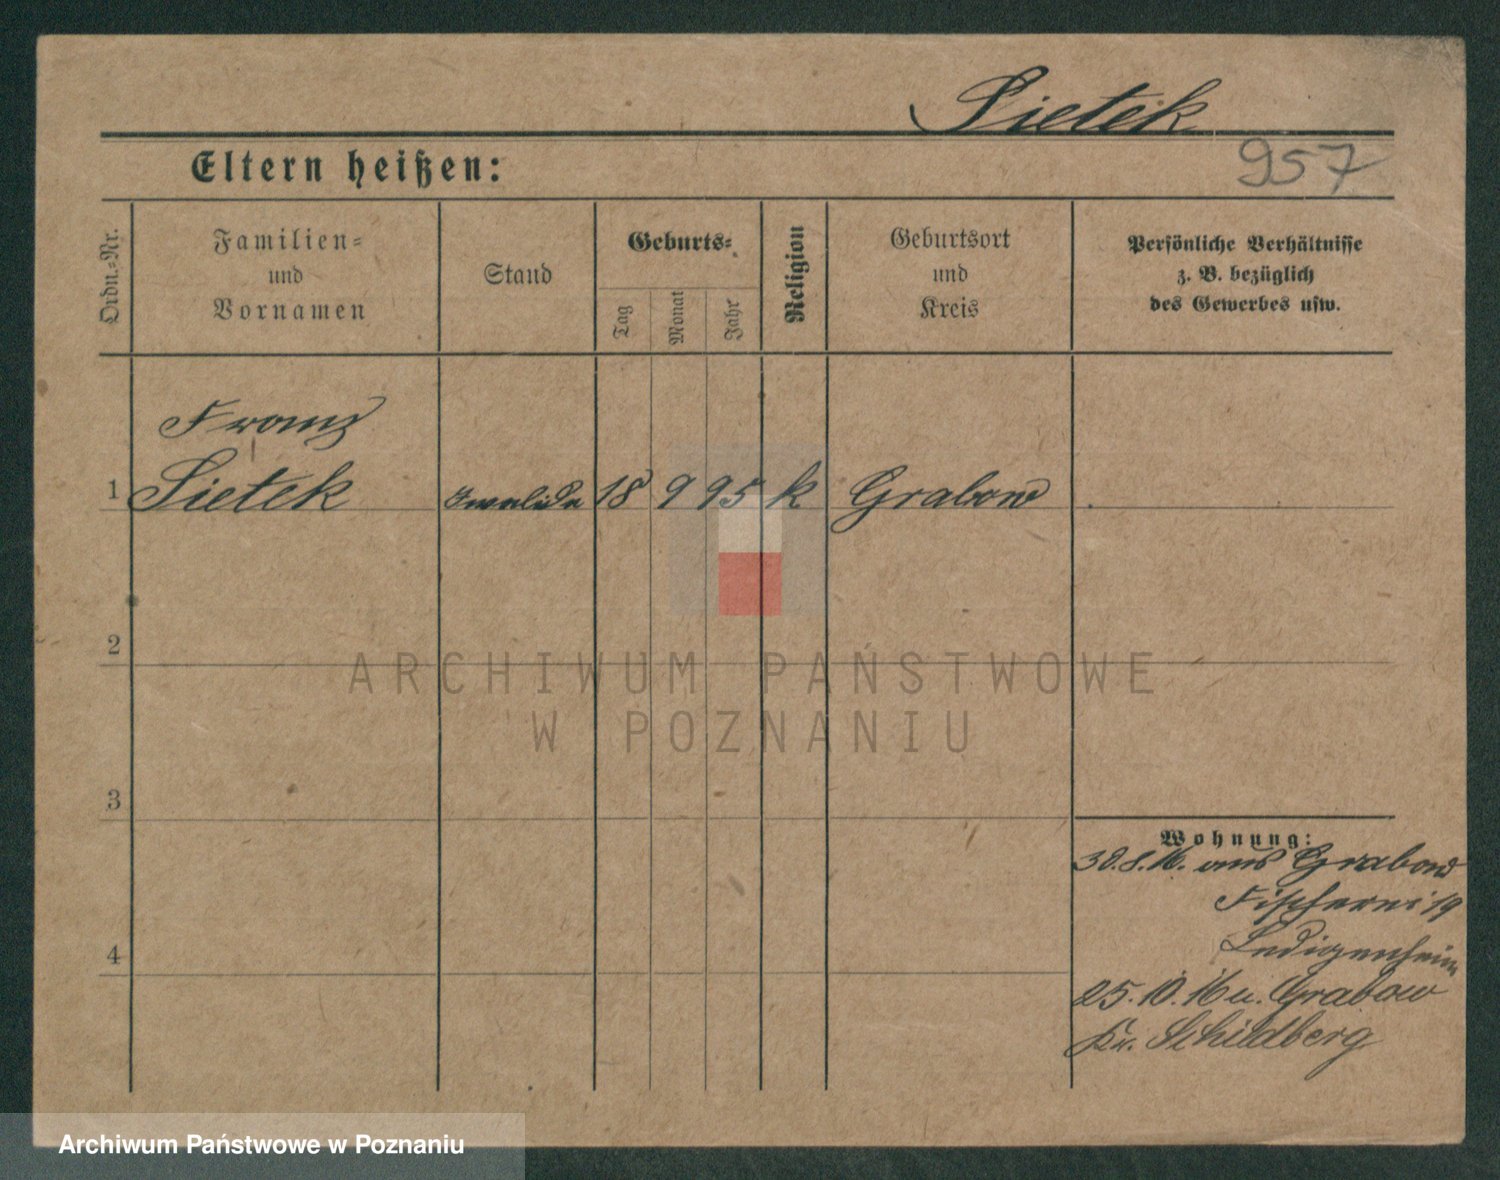 Sietek
957
Eltern heißen:
Ordn.-Nr.
Familien-
und
Vornamen
Stand
Geburts-
Tag
Monat
Jahr
Religion
Geburtsort
und
Kreis
Persönliche Verhältnisse
z. B. bezüglich
des Gewerbes usw.
Franz
1 Sietek Invalide 18 9 95 k Grabow
2
3
4
Wohnung:
30.8.16. aus Grabow
Fischerei 19
Ledigenheim
25.10.16 n. Grabow
Kr. Schildberg
ARCHIWUM PAŃSTWOWE
W POZNANIU
Archiwum Państwowe w Poznaniu